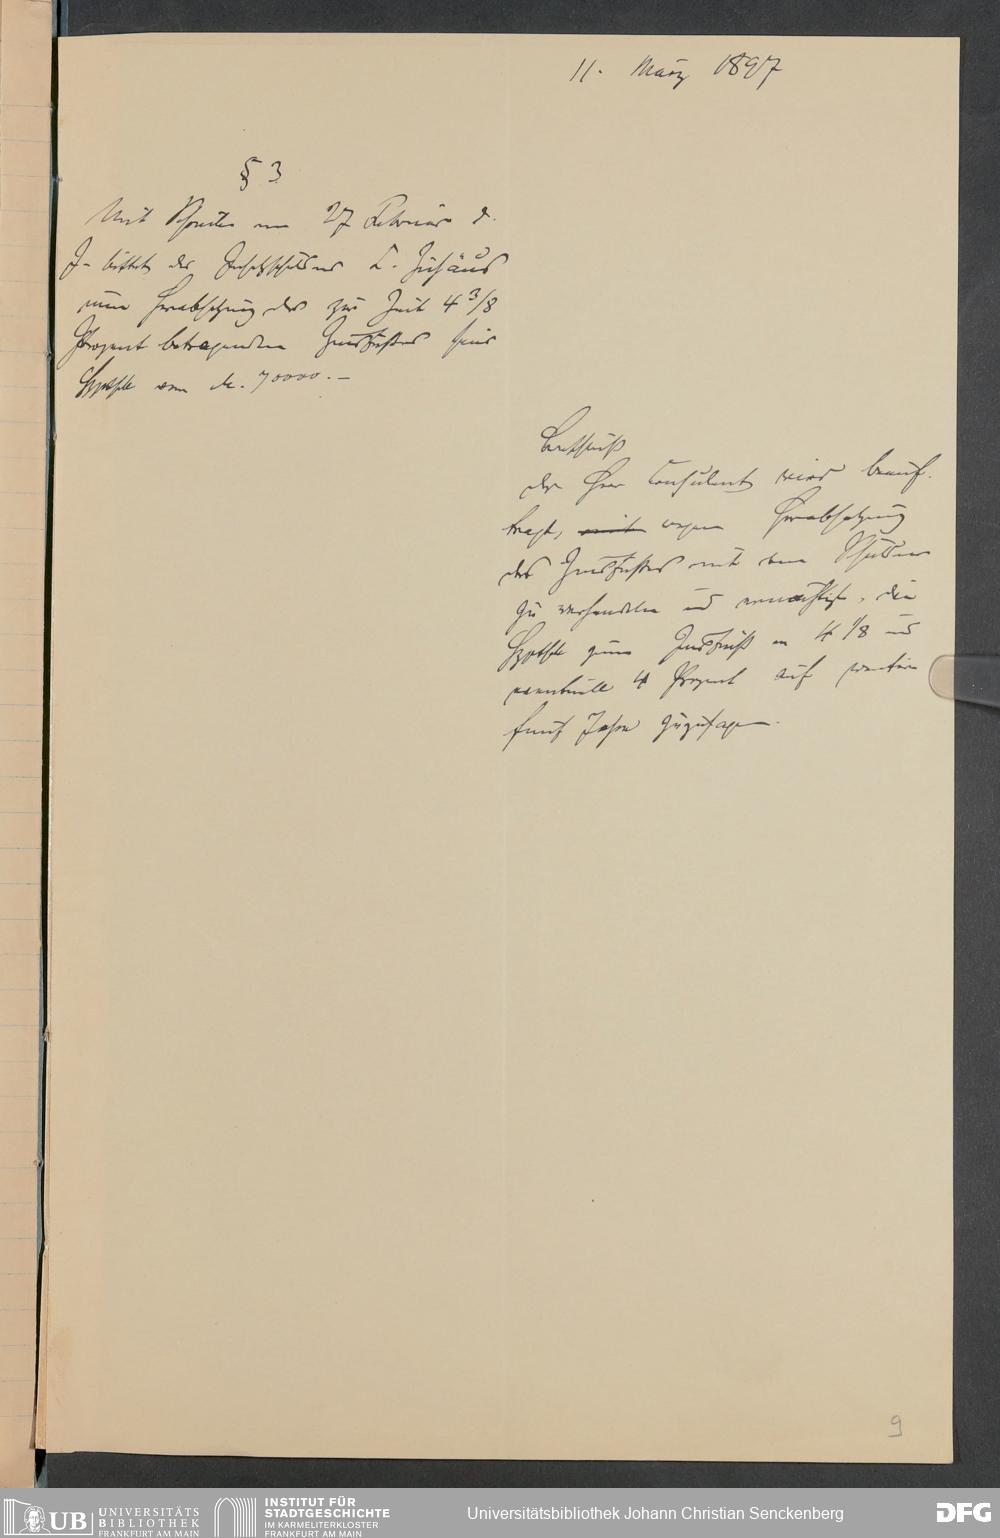 11. März 1897
§ 3
Mit Schreiben vom 27 Februar d.
J. bittet der Insatzschuldner L. Zuschaus
um Herabsetzung des zur Zeit 4 3/8
Prozent betragenden Zinsfußes seiner
Hypothek von M. 70000.—
Beschluß
der Herr Consulent wird beauf-
tragt, mit wegen Herabsetzung
des Zinsfußes mit dem Schuldner
zu verhandeln und ermächtigt, die
Hypothek zum Zinsfuß von 4 1/8 und
eventuell 4 Prozent auf weitere
fünf Jahre zuzusagen.
9
UB UNIVERSITÄTS
BIBLIOTHEK
FRANKFURT AM MAIN
INSTITUT FÜR
STADTGESCHICHTE
IM KARMELITERKLOSTER
FRANKFURT AM MAIN
Universitätsbibliothek Johann Christian Senckenberg
DFG